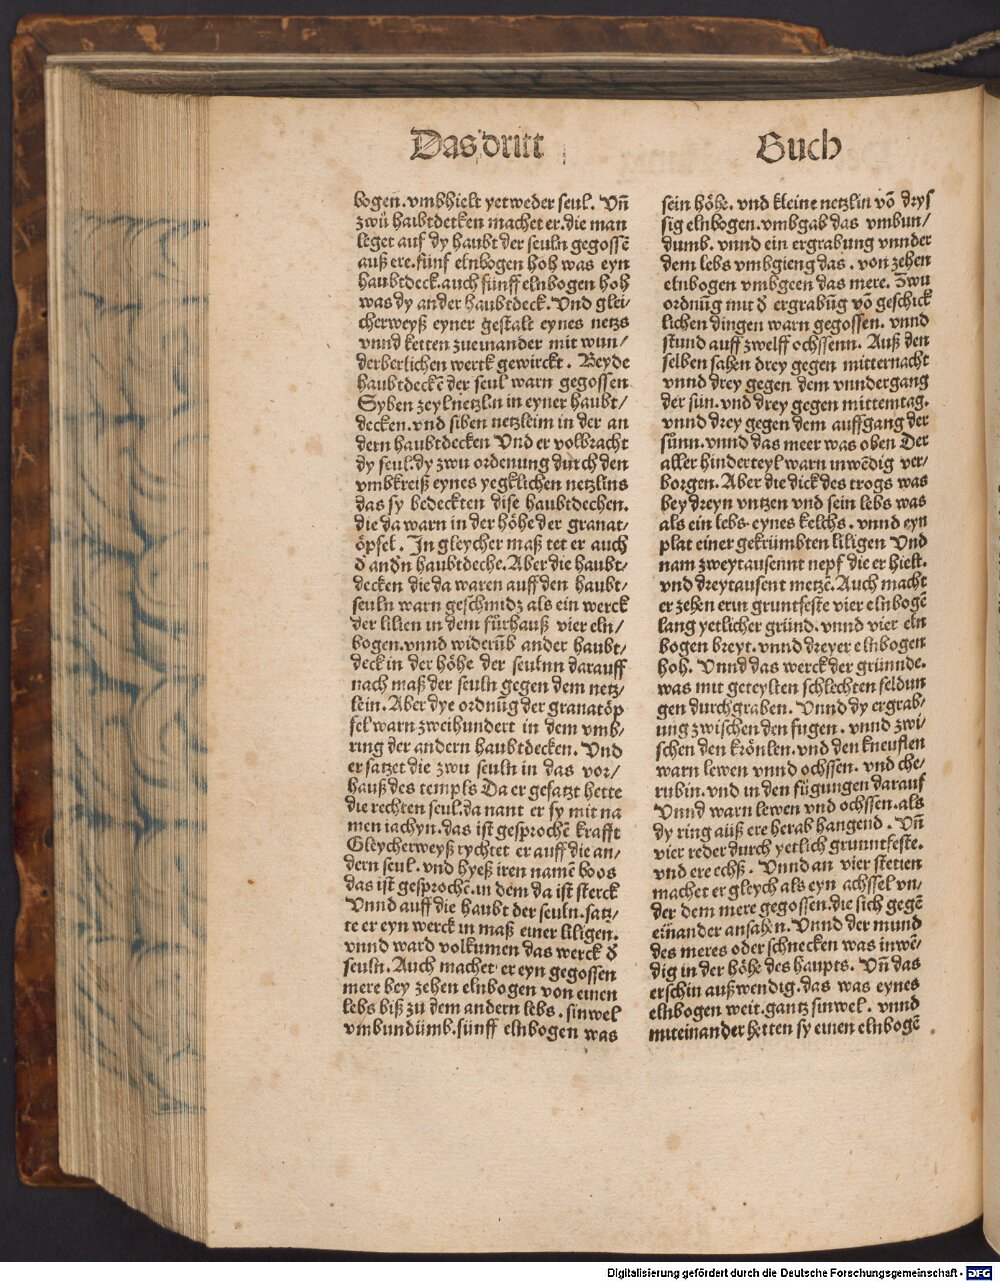 Das dritt Buch
bogen. vmbhielt yetweder seul. Vñ
zwü haubtdecken machet er. die man
leget auf dy haubt der seuln gegossē
auß ere. fünf elnbogen hoh was eyn
haubtdeck. auch fünff elnbogen hoh
was dy ander haubtdeck. Vnd glei⸗
cherweyß eyner gestalt eynes netzs
vnnd ketten zueinander mit wun⸗
derberlichen werck gewirckt. Beyde
haubtdeckē der seul warn gegossen
Syben zeyl netzlin in eyner haubt⸗
decken. vnd siben netzleim in der an
dern haubtdecken Vnd er volbracht
dy seul. dy zwu ordenung durch den
vmbkreiß eynes yegklichen netzlins
das sy bedeckten dise haubtdechen.
die da warn in der höhe der granat⸗
öpfel. In gleycher maß tet er auch
d̄ andn̄ haubtdeche. Aber die haubt⸗
decken die da waren auff den haubt⸗
seuln warn geschmidz als ein werck
der lilien in dem fürhauß vier eln⸗
bogen. vnnd widerūb ander haubt⸗
deck in der höhe der seulnn darauff
nach maß der seuln gegen dem netz⸗
lein. Aber dye ordnūg der granatöp
fel warn zweihundert in dem vmb⸗
ring der andern haubtdecken. Vnd
er satzet die zwu seuln in das vor⸗
hauß des templs Da er gesatzt hette
die rechten seul. da nant er sy mit na
men iachyn. das ist gesprochē krafft
Gleycherweyß rychtet er auff die an⸗
dern seul. vnd hyeß iren namē boos
das ist gesprochē. in dem da ist sterck
Vnnd auff die haubt der seuln. satz⸗
te er eyn werck in maß einer liligen.
vnnd ward volkumen das werck d̄
seuln. Auch machet er eyn gegossen
mere bey zehen elnbogen von einen
lebs biß zu dem andern lebs. sinwel
vmbundümb. fünff elnbogen was
sein höhe. vnd kleine netzlin vō drys
sig elnbogen. vmbgab das vmbun⸗
dumb. vnnd ein ergrabung vnnder
dem lebs vmbgieng das. von zehen
elnbogen vmbgeen das mere. Zwu
ordnūg mit d̄ ergrabūg vō geschick
lichen dingen warn gegossen. vnnd
stund auff zwelff ochssenn. Auß den
selben sahen drey gegen mitternacht
vnnd drey gegen dem vnndergang
der sun. vnd drey gegen mittemtag.
vnnd drey gegen dem auffgang der
sünn. vnnd das meer was oben Der
aller hinderteyl warn inwēdig ver⸗
borgen. Aber die dick des trogs was
bey dreyn vntzen vnd sein lebs was
als ein lebs eynes kelchs. vnnd eyn
plat einer gekrümbten liligen Vnd
nam zweytausennt nepf die er hielt.
vnd dreytausent metzē. Auch macht
er zehen erin gruntfeste vier elnbogē
lang yetlicher gründ. vnnd vier eln
bogen breyt. vnnd dreyer elnbogen
hoh. Vnnd das werck der grünnde.
was mit geteylten schlechten feldun
gen durchgraben. Vnnd dy ergrab⸗
ung zwischen den fugen. vnnd zwi⸗
schen den krönlen. vnd den kneuflen
warn lewen vnnd ochssen. vnd che⸗
rubin. vnd in den fügungen darauf
Vnnd warn lewen vnd ochssen. als
dy ring auß ere herab hangend. Vñ
vier reder durch yetlich grunntfeste.
vnd ere echß. Vnnd an vier stetten
machet er gleych als eyn achssel vn⸗
der dem mere gegossen. die sich gegē
einander ansahen. Vnnd der mund
des meres oder schnecken was inwē⸗
dig in der höhe des haupts. Vñ das
erschin außwendig. das was eynes
elnbogen weit. gantz sinwel. vnnd
miteinander hetten sy einen elnbogē
Digitalisierung gefördert durch die Deutsche Forschungsgemeinschaft - DFG